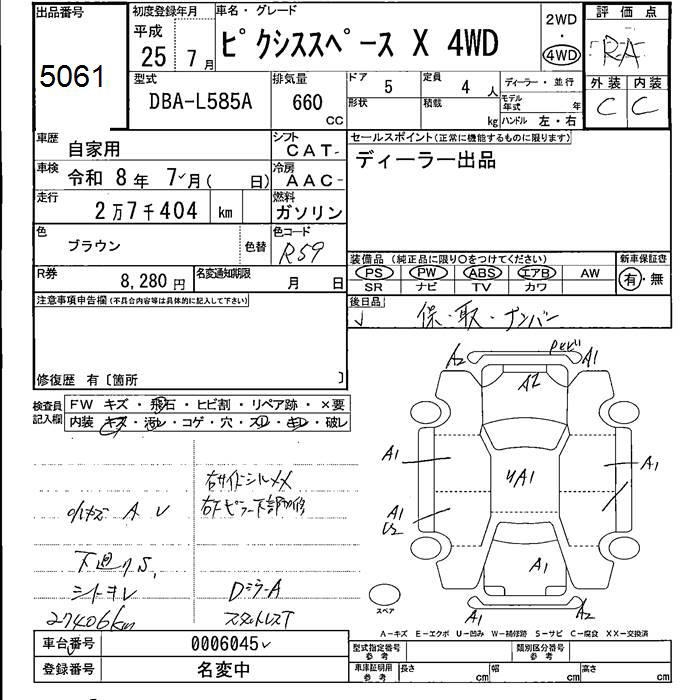 出品番号
5061
初度登録年月
平成
25 7月
車名・グレード
ピクシススペース X 4WD
2WD
・
4WD
評価点
RA
外装 内装
C C
型式
DBA-L585A
排気量
660
CC
ドア
5
定員
4 人
ディーラー・並行
形状
積載
kg
モデル年式
年
ハンドル 左・右
車歴
自家用
シフト
CAT-
車検
令和 8年 7月( 日)
冷房
AAC-
走行
2万7千404 km
燃料
ガソリン
色
ブラウン
色替
色コード
R59
セールスポイント(正常に機能するものに限ります)
ディーラー出品
R券
8,280円
名変通知期限
月 日
装備品 (純正品に限り〇をつけてください)
新車保証書
PS PW ABS エアB AW
SR ナビ TV カワ
有・無
注意事項申告欄(不具合内容等は具体的に記入して下さい)
後日品
保・取・ナンバー
修復歴 有〔箇所 〕
検査員記入欄
FW キズ・飛石・ヒビ割・リペア跡・×要
内装 キズ・汚レ・コゲ・穴・スレ・キレ・破レ
右サイドシルメメ
小キズ A
下廻りS,
シートヨレ
27406km
Dミラ-A
スタットレスT
A2 A1
A2
A1 A1
YA1
A1
U2
A1
A1 A2
スペア
A-キズ E-エクボ U-凹み W-補修跡 S-サビ C-腐食 XX-交換済
車台番号
0006045
登録番号
名変中
型式指定番号
参考
類別区分番号
参考
車庫証明用
参考
長さ cm
幅 cm
高さ cm